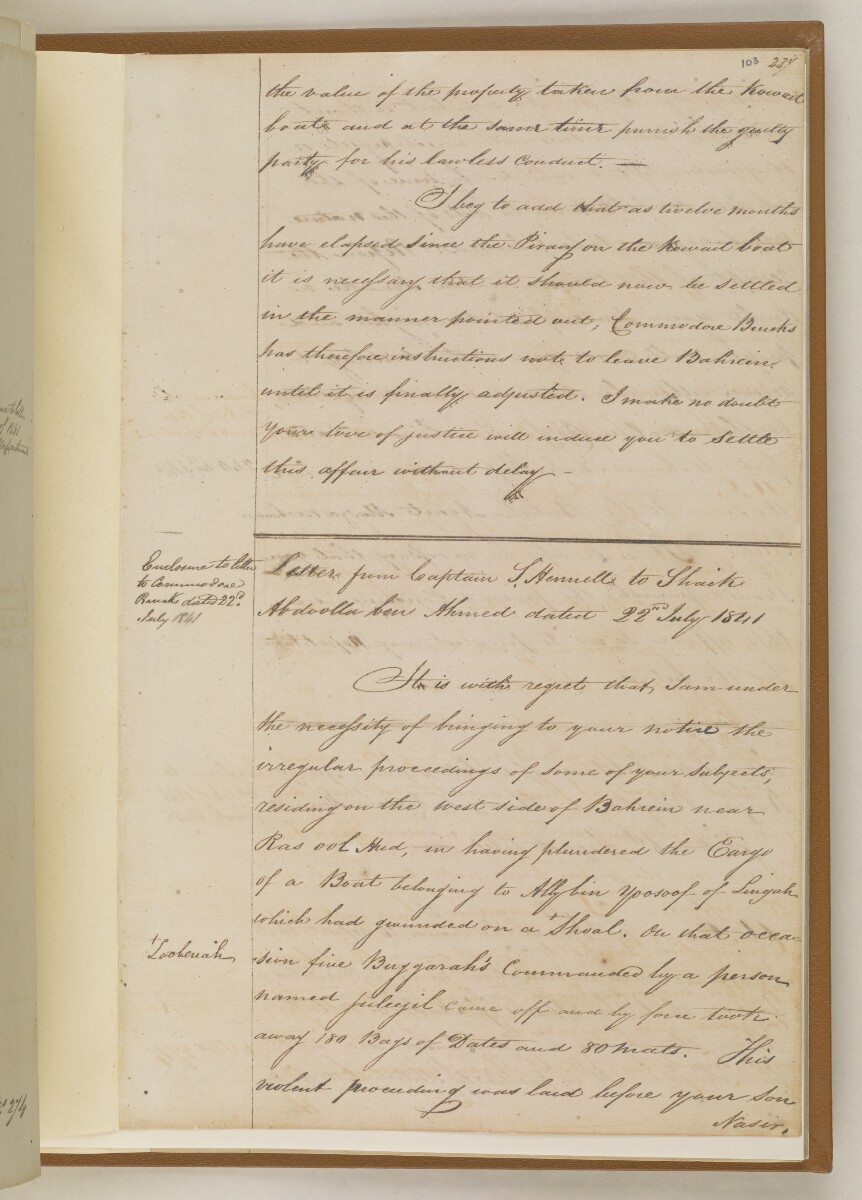 103 237
the value of the property taken from the Kowait
boat and at the same time punish the guilty
party for his lawless conduct. —
I beg to add that as twelve months
have elapsed since the Piracy on the Kowait boat
it is necessary that it should now be settled
in the manner pointed out, Commodore Brucks
has therefore instructions not to leave Bahrein
until it is finally adjusted. I make no doubt
your love of justice will induce you to settle
this affair without delay —
Enclosure to letter
to Commodore
Brucks dated 22d
July 1841
Letter from Captain S. Hennell to Shaik
Abdoolla bin Ahmed dated 22nd July 1841
It is with regret that I am under
the necessity of bringing to your notice the
irregular proceedings of some of your subjects,
residing on the west side of Bahrein near
Ras ool Hud, in having plundered the Cargo
of a Boat belonging to Ally bin Yoosoof of Lingah
which had grounded on a † Shoal. On that occa-
† Looberiah
sion five Buggarah's Commanded by a person
named Juleejil came off and by force took
away 180 Bags of Dates and 80 Mats. This
violent proceeding was laid before your son
Nasir.
274